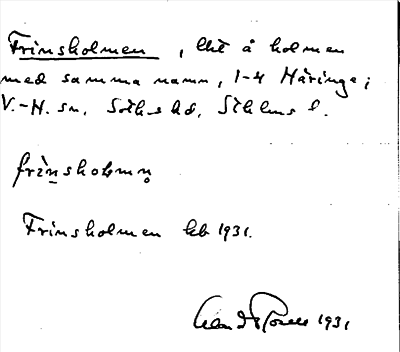 Frinsholmen, lht å holmen
med samma namn, 1-4 Häringe i
V.-H. sn, Soth-s hd, Sthlms l.
frìn̲sholmn̥
Frinsholmen kb 1931.
1931